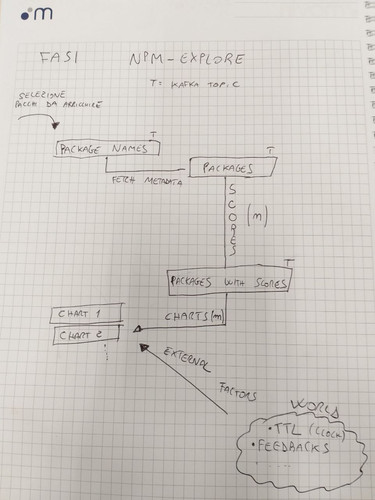 m
FASI NPM-EXPLORE
T = KAFKA TOPIC
SELEZIONE
PACCHI DA ARRICCHIRE
T
PACKAGE NAMES
T
PACKAGES
FETCH METADATA
SCORES (m)
T
PACKAGES WITH SCORES
CHARTS (m)
CHART 1
CHART 2
EXTERNAL
FACTORS
WORLD
• TTL (CLOCK)
• FEEDBACKS
.....